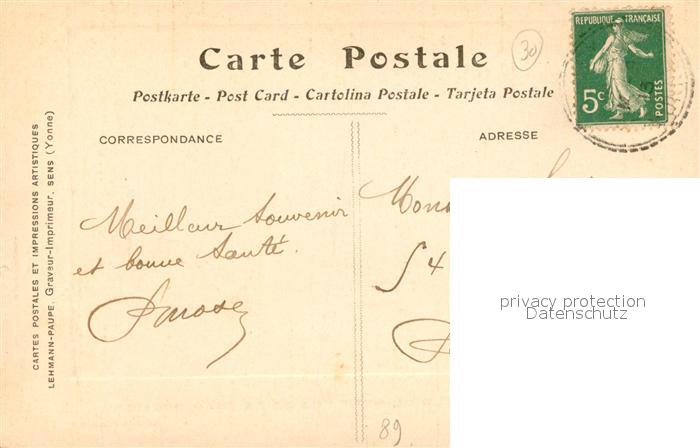 Carte Postale
30
RÉPUBLIQUE FRANÇAISE
5c
POSTES
Postkarte - Post Card - Cartolina Postale - Tarjeta Postale
CORRESPONDANCE
ADRESSE
CARTES POSTALES ET IMPRESSIONS ARTISTIQUES
LEHMANN-PAUPE, Graveur-Imprimeur, SENS (Yonne)
Meilleur souvenir
et bonne santé.
54
89
privacy protection
Datenschutz